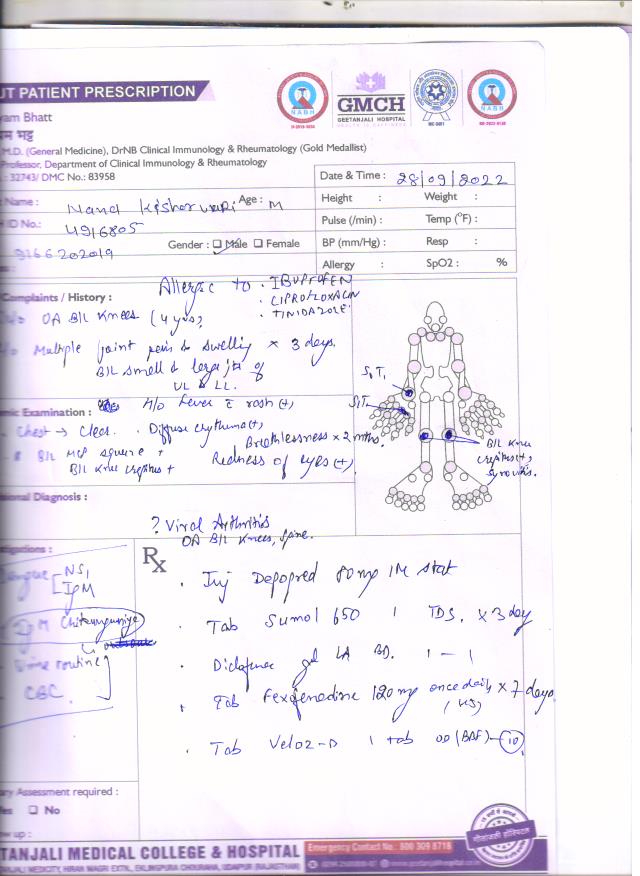 UT PATIENT PRESCRIPTION
NABH
H-2019-0656
GMCH
GEETANJALI HOSPITAL
MC-3001
NABH
yam Bhatt
म भट्ट
M.D. (General Medicine), DrNB Clinical Immunology & Rheumatology (Gold Medallist)
Professor, Department of Clinical Immunology & Rheumatology
: 32743/ DMC No.: 83958
Date & Time : 28/09/2022
Name : Nand Kishor Age : M
Height : Weight :
ID No.: 4916805
Pulse (/min) : Temp (°F) :
Gender : Male Female
BP (mm/Hg) : Resp :
9266202019
Allergy : SpO2 : %
Allergic to · IBUPROFEN
Complaints / History :
· CIPROFLOXACIN
· TINIDAZOLE
OA B/L Knees (4 yrs)
Multiple joint pain & swelling x 3 days.
B/L small & large jts of
UL & LL.
S1 T1
S1 T1
H/o Fever c rash (+)
mic Examination :
Chest → Clear. · Diffuse erythema (+)
Breathlessness x 2 mths.
B/L MCP squeeze +
B/L Knee crepitus +
Redness of eyes (+)
B/L Knee
crepitus (+),
synovitis.
sional Diagnosis :
? Viral Arthritis
OA B/L Knees, Spine.
stigations :
Rx
Dengue NS1
IgM
· Inj Depopred 80mg IM stat
IgM Chikungunya
· Tab Sumol 650 1 TDS. x 3 day
Urine routine
· Diclofenac gel LA BD. 1 - 1
CBC
· Tab Fexofenadine 120 mg once daily x 7 days
(HS)
· Tab Veloz-D 1 tab OD (BBF) - 10
ary Assessment required :
Yes No
ow up :
TANJALI MEDICAL COLLEGE & HOSPITAL
Emergency Contact No.: 800 309 8718
NJALI MEDICITY, HIRAN MAGRI EXTN., EKLINGPURA CHOURAHA, UDAIPUR (RAJASTHAN)